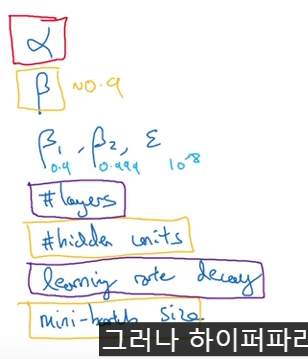 α
β ~0.9
β₁, β₂, ε
0.9 0.999 10⁻⁸
#layers
#hidden units
learning rate decay
mini-batch size
그러나 하이퍼파라